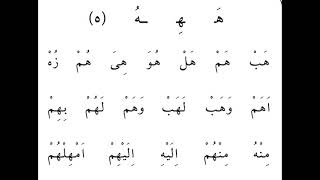 هَـ هِـ ـهُ (٥)
هَبْ هَمْ هَلْ هُوَ هِىَ هُمْ زُهْ
اَهَمْ وَهَبْ لَهَبْ وَهَمْ لَهُمْ بِهِمْ
مِنْهُ مِنْهُمْ اِلَيْهِ اِلَيْهِمْ اَمْهِلْهُمْ